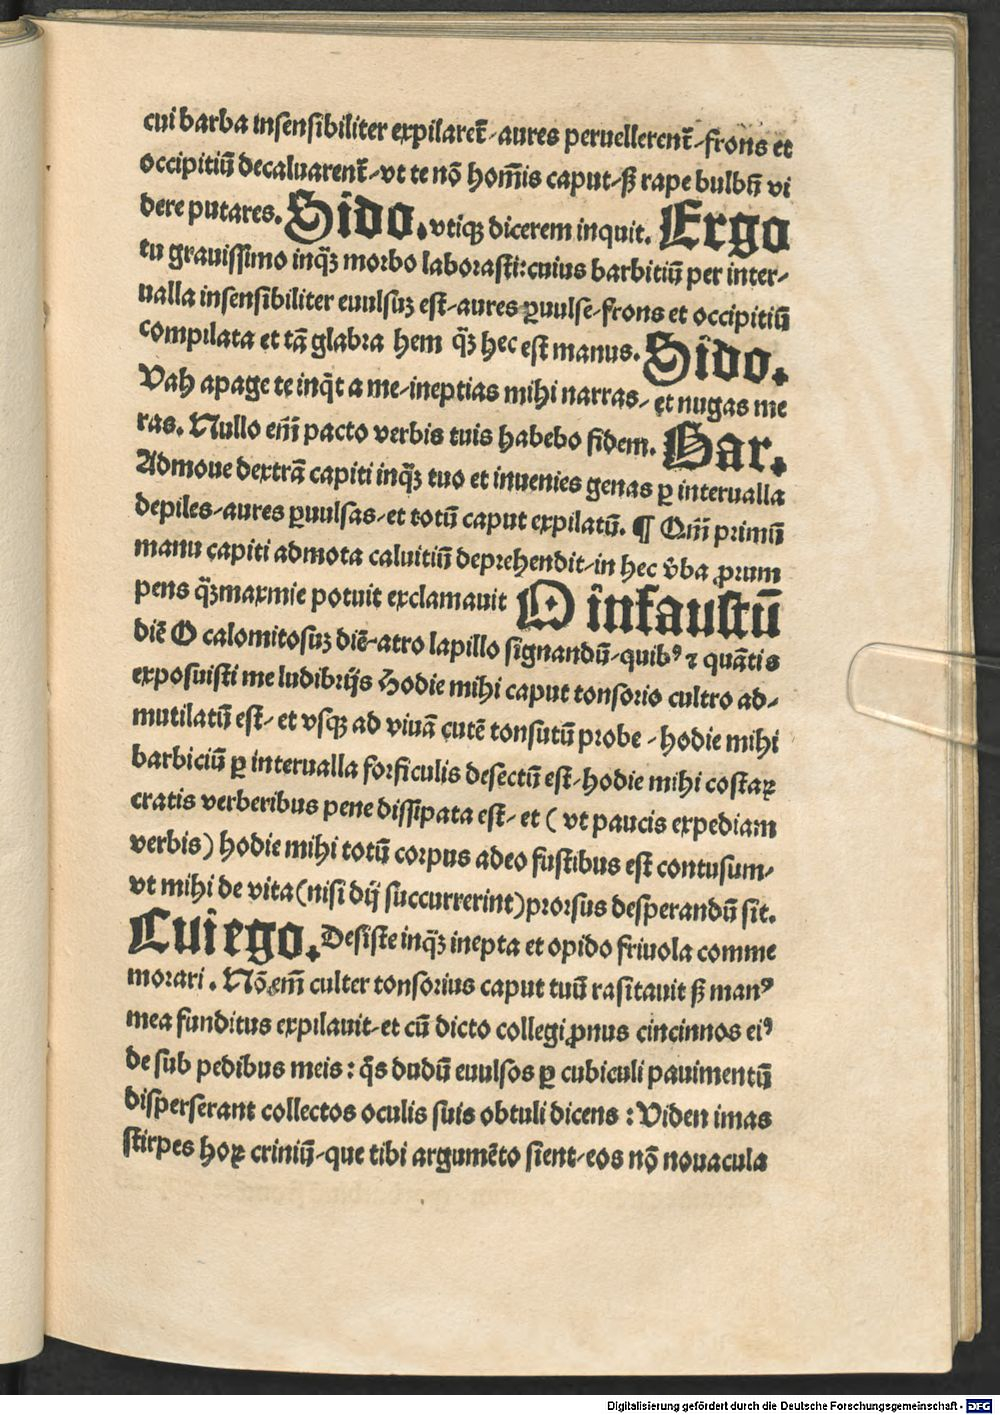 cui barba inſenſibiliter expilaret̄ ⸗ aures peruellerent̄ ⸗ frons et
occipitiū decaluarent̄ ⸗ vt te nō hom̄is caput ⸗ ß rape bulbū vi
dere putares. Sido. vtiqꝫ dicerem inquit. Ergo
tu grauiſſimo inq̄ꝫ morbo laboraſti: cuius barbitiū per inter⸗
ualla inſenſibiliter euulſuꝫ eſt ⸗ aures ꝑuulſe ⸗ frons et occipitiū
compilata et tā glabra hem q̄ꝫ hec eſt manus. Sido.
Vah apage te inq̄t a me ⸗ ineptias mihi narras ⸗ et nugas me
ras. Nullo em̄ pacto verbis tuis habebo fidem. Bar.
Admoue dextrā capiti inq̄ꝫ tuo et inuenies genas ꝑ interualla
depiles ⸗ aures ꝑuulſas ⸗ et totū caput expilatū. ¶ Qm̄ primū
manu capiti admota caluitiū deprehendit ⸗ in hec v̄ba ꝓrum
pens q̄ꝫmaxmie potuit exclamauit O infauſtū
diē O calomitoſuꝫ diē ⸗ atro lapillo ſignandū ⸗ quibꝰ ⁊ quātis
expoſuiſti me ludibrijs Hodie mihi caput tonſorio cultro ad⸗
mutilatū eſt ⸗ et vſqꝫ ad viuā cutē tonſutū probe ⸗ hodie mihi
barbiciū ꝑ interualla forficulis deſectū eſt ⸗ hodie mihi coſtaꝝ
cratis verberibus pene diſſipata eſt ⸗ et ( vt paucis expediam
verbis ) hodie mihi totū corpus adeo fuſtibus eſt contuſum⸗
vt mihi de vita (niſi dij ſuccurrerint) prorſus deſperandū ſit.
Cui ego. Deſiſte inq̄ꝫ inepta et opido friuola comme
morari. Nō em̄ culter tonſorius caput tuū raſitauit ß manꝰ
mea funditus expilauit ⸗ et cū dicto collegi ꝓnus cincinnos eiꝰ
de ſub pedibus meis: q̄s dudū euulſos ꝑ cubiculi pauimentū
diſperſerant collectos oculis ſuis obtuli dicens: Viden imas
ſtirpes hoꝝ criniū ⸗ que tibi argumēto ſient ⸗ eos nō nouacula
Digitalisierung gefördert durch die Deutsche Forschungsgemeinschaft - DFG